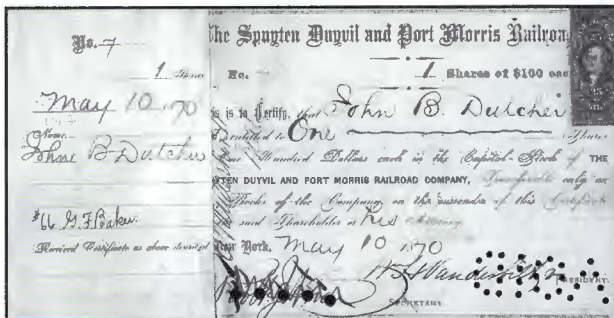 No. 7
1 Shares
May 10. 70
Name
John B Dutcher
$66 G. F. Baker.
Received Certificate as above described
The Spuyten Duyvil and Port Morris Railroa
No. 1 Shares of $100 eac
is is to Certify, that John B. Dutcher
is entitled to One Shares
One Hundred Dollars each in the Capital Stock of THE
TEN DUYVIL AND PORT MORRIS RAILROAD COMPANY, Transferable only on
Books of the Company on the surrender of this Certificate
the said Shareholder or his Attorney
New York, May 10 1870
Vanderbilt
PRESIDENT.
SECRETARY